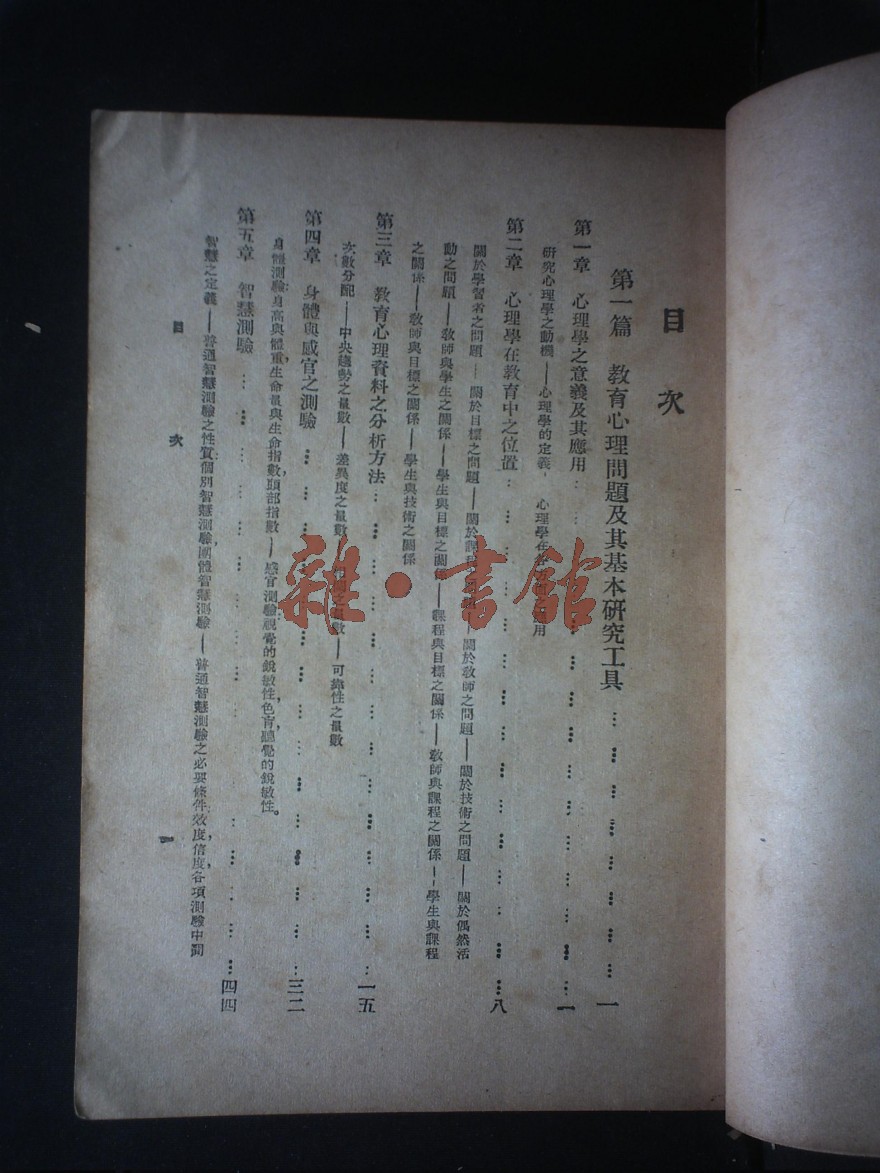 目次
第一篇 教育心理問題及其基本研究工具……一
第一章 心理學之意義及其應用……一
研究心理學之動機——心理學的定義——心理學在各方面之應用
第二章 心理學在教育中之位置……八
關於學習者之問題——關於目標之問題——關於課程之問題——關於教師之問題——關於技術之問題——關於偶然活
動之問題——教師與學生之關係——學生與目標之關係——課程與目標之關係——教師與課程之關係——學生與課程
之關係——教師與目標之關係——學生與技術之關係
第三章 教育心理資料之分析方法……一五
次數分配——中央趨勢之量數——差異度之量數——相關之量數——可靠性之量數
第四章 身體與感官之測驗……三二
身體測驗,身高與體重,生命量與生命指數,頭部指數——感官測驗,視覺的銳敏性,色盲,聽覺的銳敏性。
第五章 智慧測驗……四四
智慧之定義——普通智慧測驗之性質,個別智慧測驗,團體智慧測驗——普通智慧測驗之必要條件,效度,信度,各項測驗中間
目次
一
雜·書館